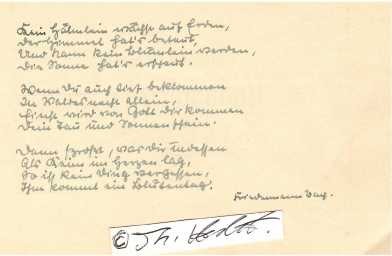 Kein Hälmlein wächst auf Erden,
Der Himmel hat's betaut,
Und kann kein Blümlein werden,
Die Sonne hat's erschaut.
Wenn Du auch tief beklommen
In Waldesnacht allein,
Einst wird von Gott Dir kommen
Dein Tau und Sonnenschein.
Dann sproßt, was Dir indessen
Als Keim im Herzen lag,
So ist kein Ding vergessen,
Ihm kommt ein Blütentag.
Friedemann Bach.
© Th.